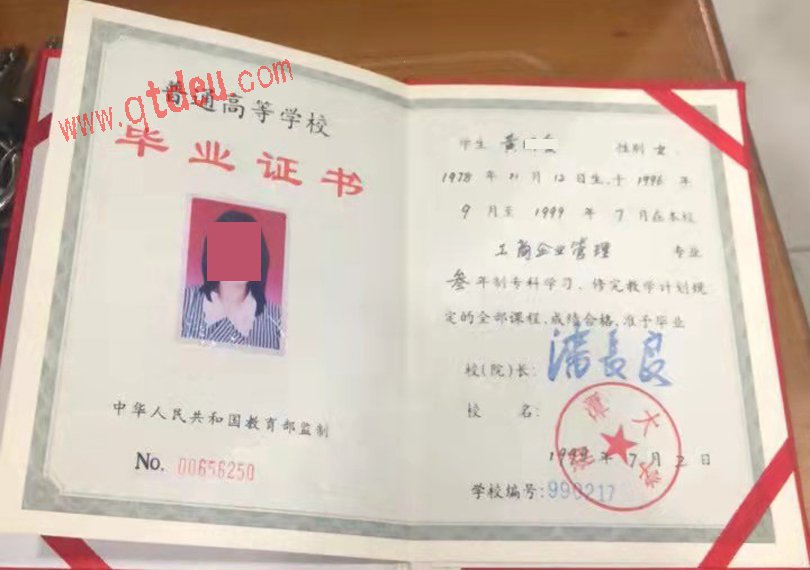 www.qtdeu.com
普通高等学校
毕业证书
中华人民共和国教育部监制
No. 00656250
学生 黄 性别 女.
1978 年 11 月 12 日生,于 1996 年
9 月至 1999 年 7 月在本校
工商企业管理 专业
叁年制专科学习、修完教学计划规
定的全部课程,成绩合格,准予毕业
校(院)长: 潘長良
校 名:
潭大学
1999 年 7 月 2 日
学校编号: 990217